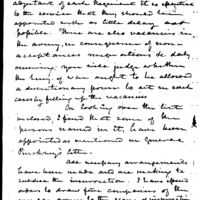 adjutant of each Regiment it is essential
to the service that they should be
appointed with as little delay as
possible. There are also vacancies in
the army, in consequence of non-
acceptances resignations &c daily
occuring. You will judge whether
the Secy. of War ought to be allowed
a discretionary power to act in such
cases by filling up the vacancies
On looking over the list
enclosed, I find that some of the
persons named in it, have been
appointed as mentioned in General
Pinckney's letter.
All necessary arrangements
have been made and are making to
subdue the insurrection. I have
orders to draw five companies of the